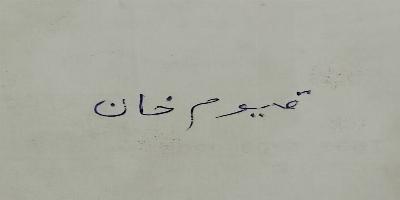 قیوم خان